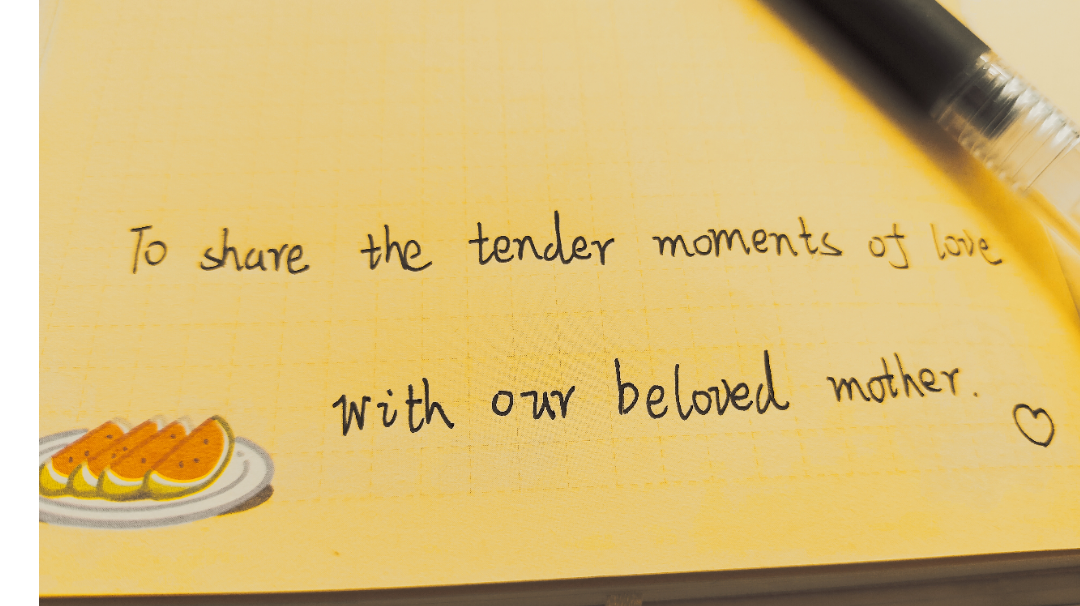 To share the tender moments of love
with our beloved mother.